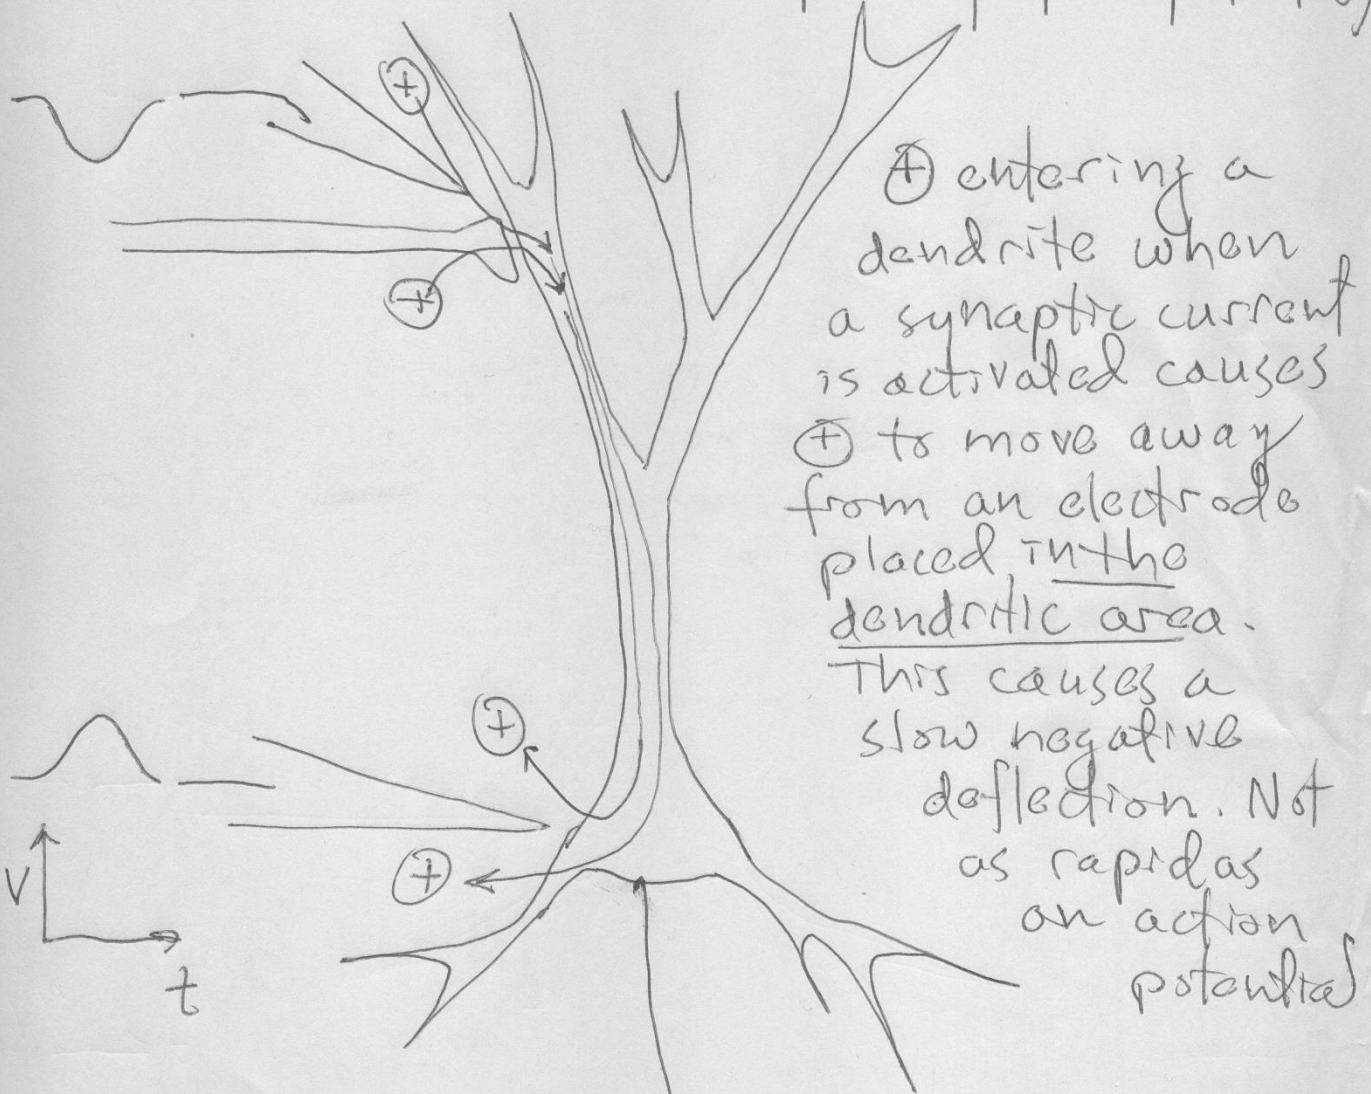 ⊕ entering a
dendrite when
a synaptic current
is activated causes
⊕ to move away
from an electrode
placed in the
dendritic area.
This causes a
slow negative
deflection. Not
as rapid as
an action
potential
+
+
+
+
V
t